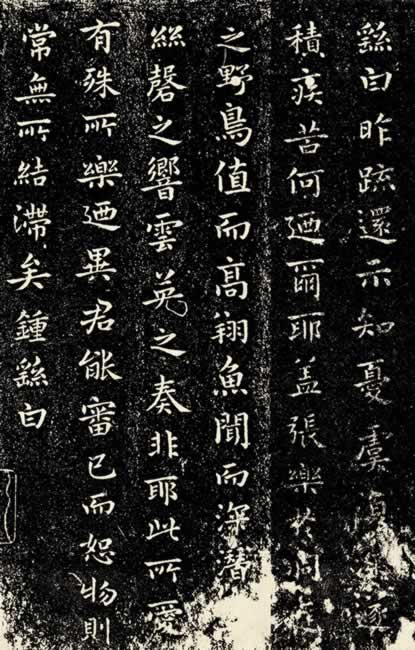 繇白昨疏還示知憂虞復深遂
積疾苦何迺爾耶蓋張樂於洞庭
之野鳥值而高翔魚聞而深潛
絲磬之響雲英之奏非耶此所愛
有殊所樂迺異君能審己而恕物則
常無所結滯矣鍾繇白